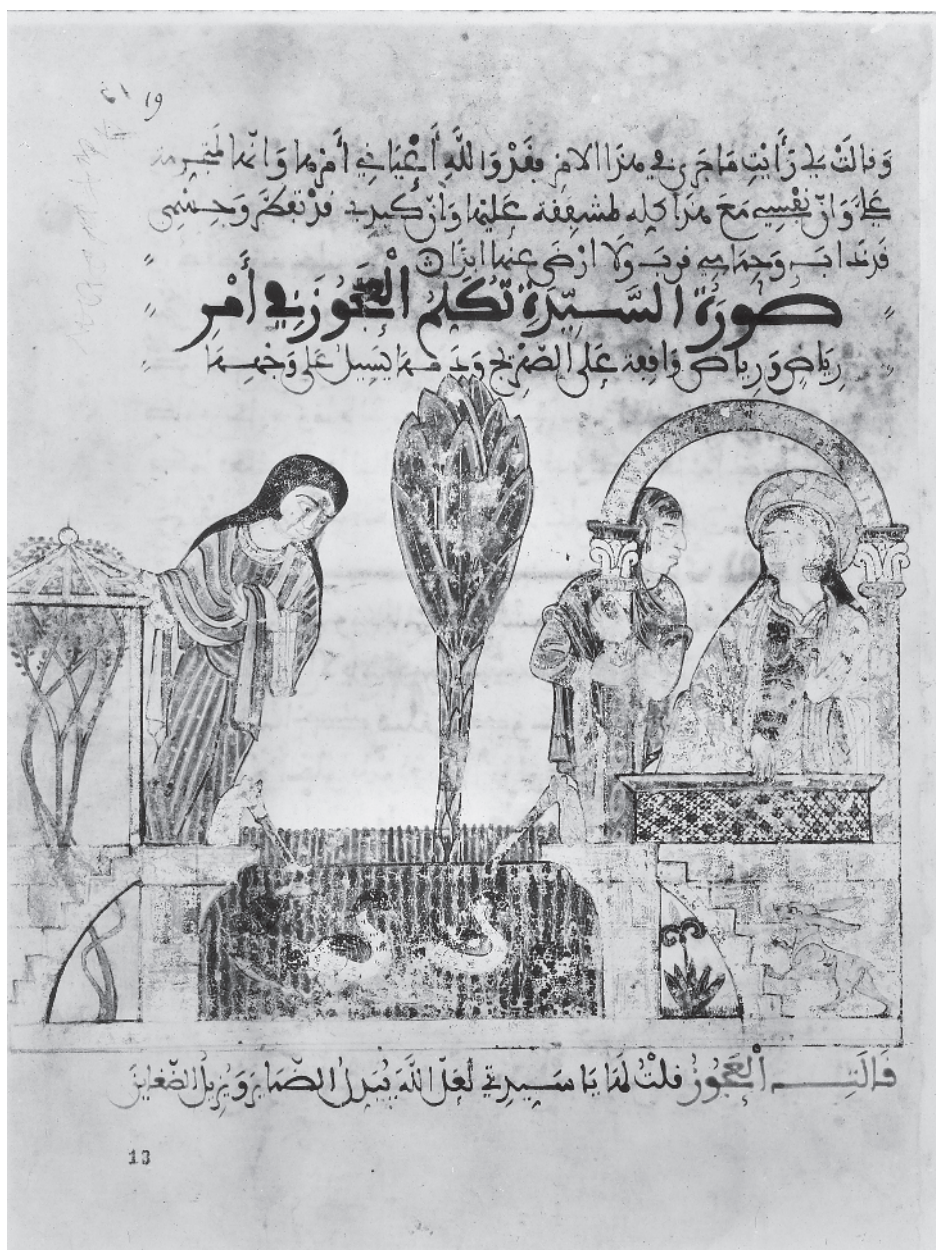 19
وَقَالَتْ لِي رَأَيْتِ مَا جَرَى فِي هٰذَا الامْرِ فَقَدْ وَاللَّهِ أَعْيَانِي أَمْرُهَا وَانَّهَا
عَلَيَّ وَانَّ نَفْسِي مَعَ هٰذَا كُلِّهِ لمشفِقة عَلَيْهَا وَانَّ كَبِدِي قَدْ تَفَطَّرَ وَجِسْمِي
قَدْ ذَابَ وَلَا ارْضَى عَنهَا ابَدًا
صورَةُ السَّيِّدَةِ تُكَلِّمُ الْعَجُوزَ فِي أَمْرِ
رِيَاضٍ وَرِيَاض وَاقِفة عَلَى الصّهْرِيج وَدَمعهَا يَسِيلُ عَلَى وَجْهِهَا
قَالَتِ الْعَجُوزُ فلتُ لَهَا يَا سَيِّدَتِي لَعَلَّ اللَّهَ يُبَدِّلُ الضّمَايِرَ وَيُزِيلُ الضّغَايِنَ
13